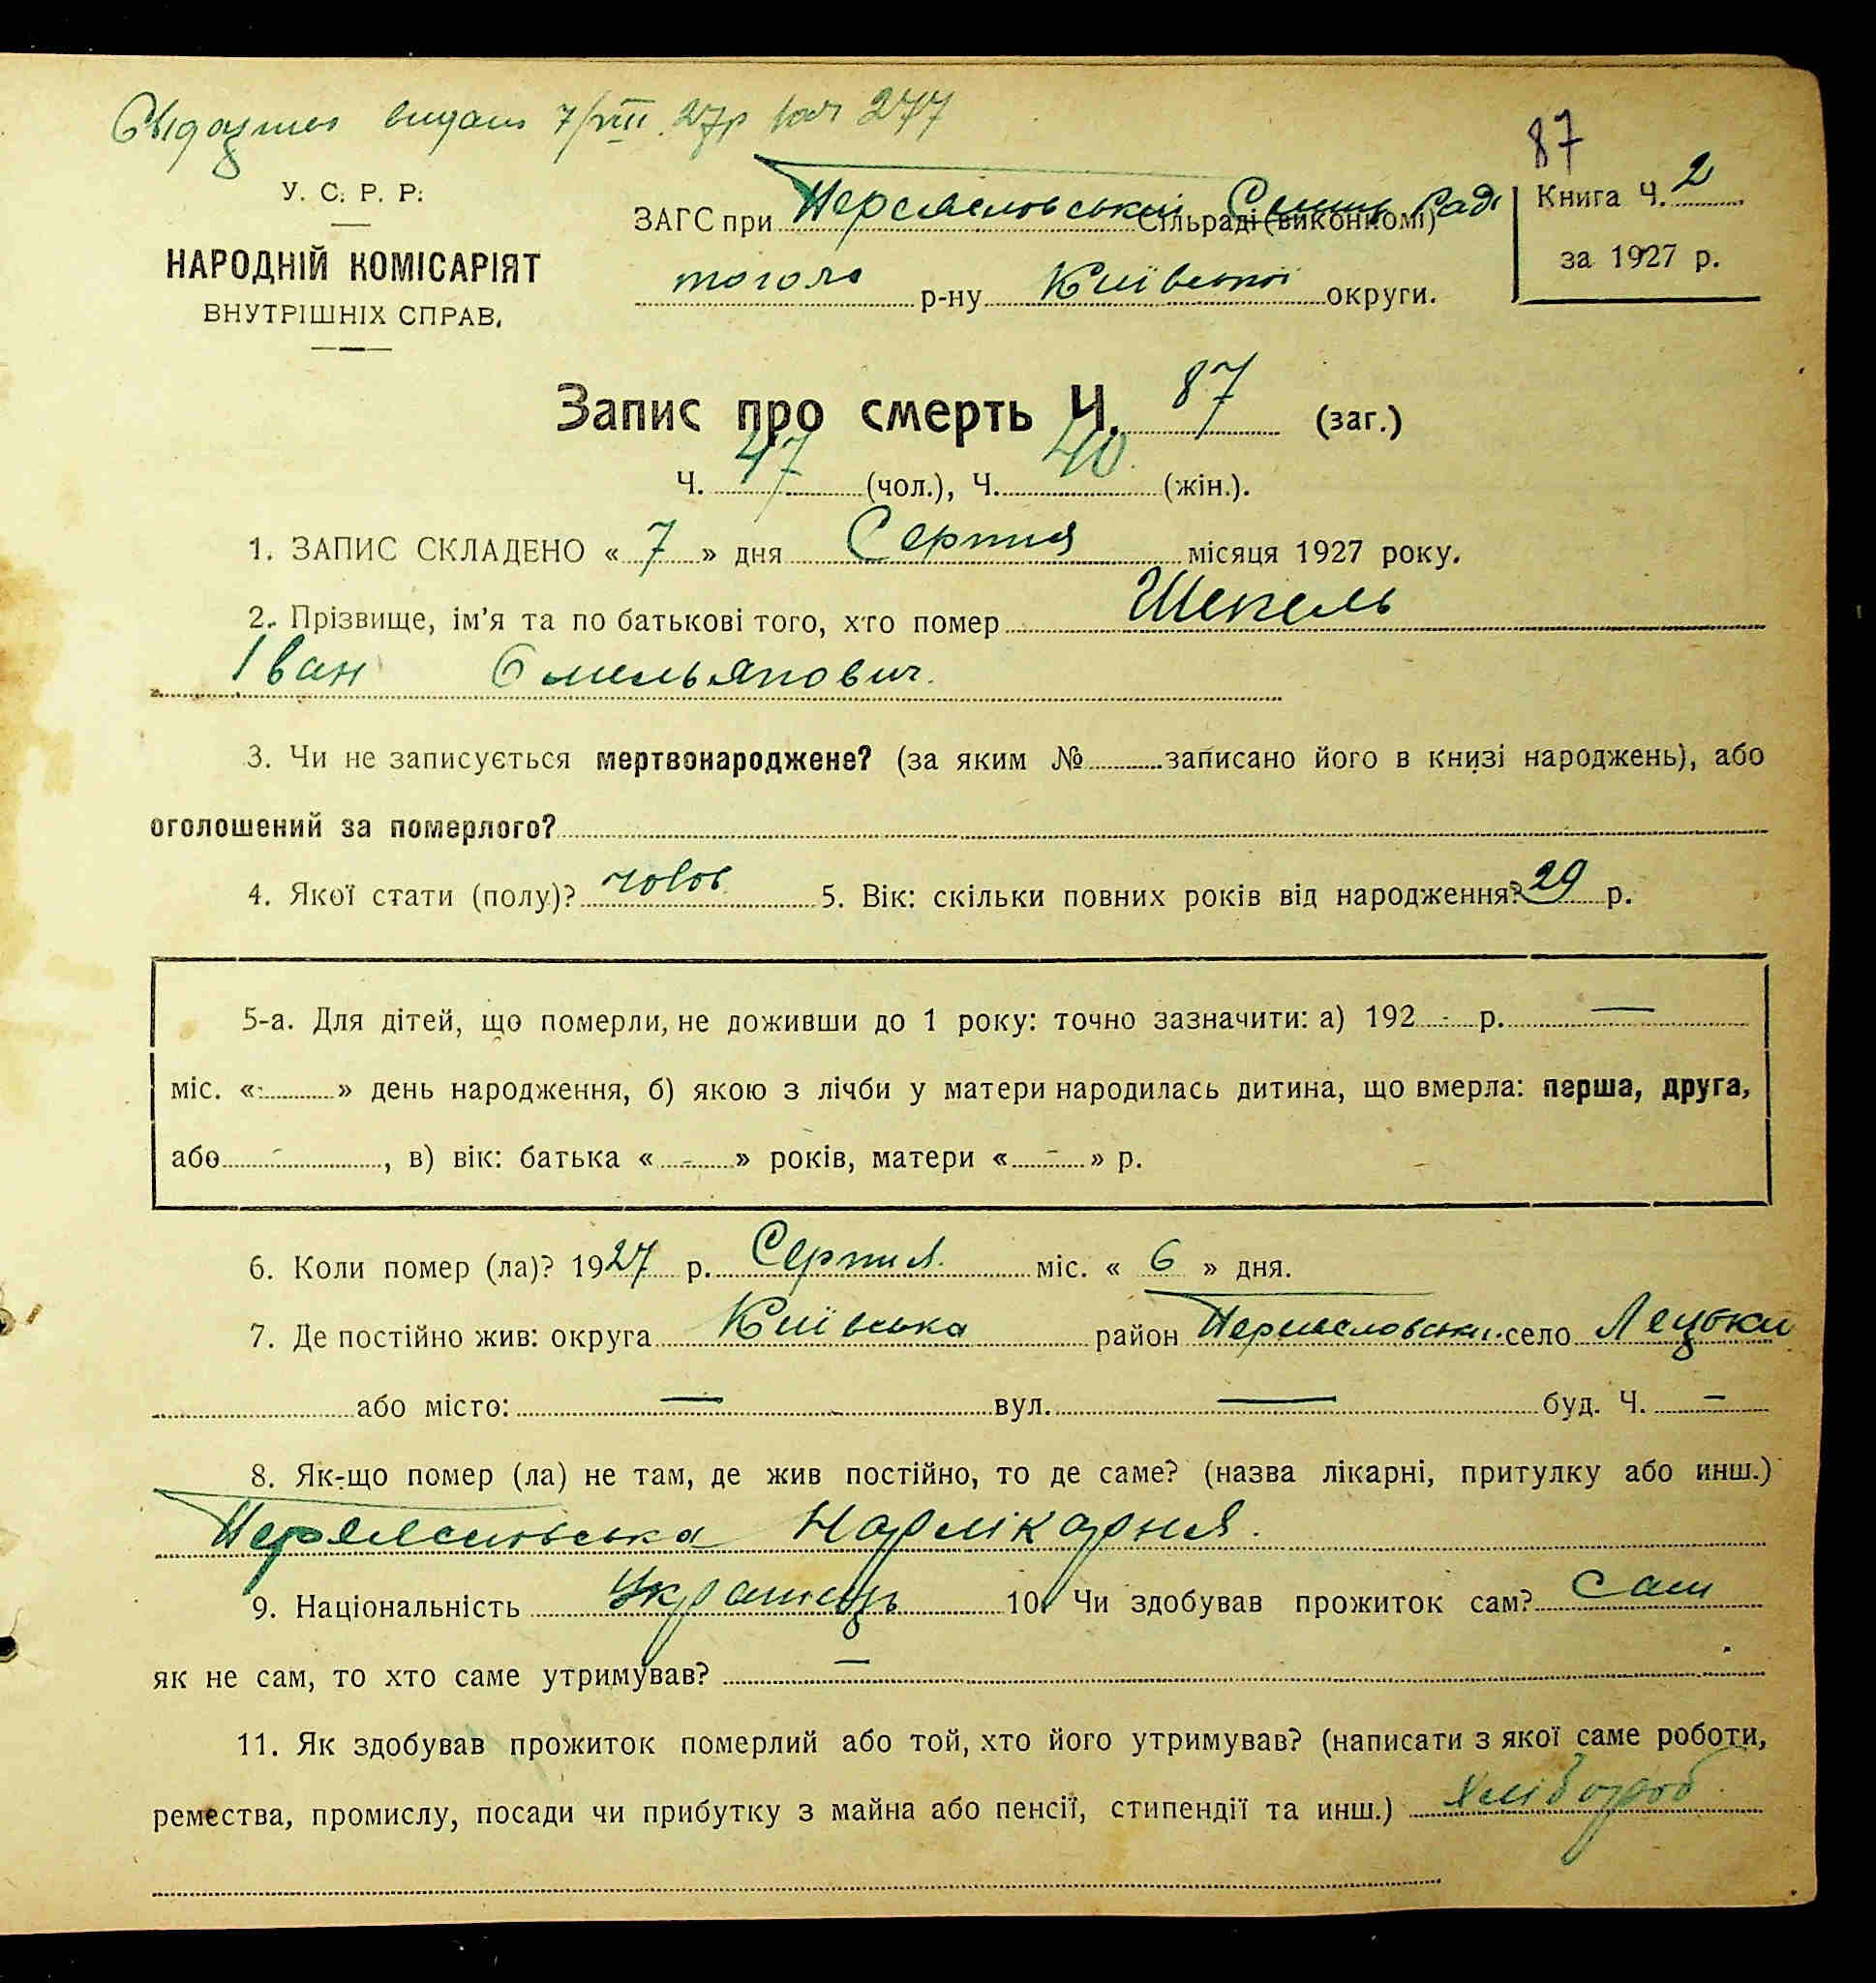 видано 7/VIII 27р 277
87
У. С. Р. Р.
НАРОДНІЙ КОМІСАРІЯТ
ВНУТРІШНІХ СПРАВ.
ЗАГС при Переяславській Сільраді (виконкомі) Раді
того ж р-ну Київської округи.
Книга Ч. 2
за 1927 р.
Запис про смерть Ч. 87 (заг.)
Ч. 47 (чол.), Ч. 40 (жін.).
1. ЗАПИС СКЛАДЕНО « 7 » дня Серпня місяця 1927 року.
2. Прізвище, ім'я та по батькові того, хто помер Шекель
Іван Омельянович.
3. Чи не записується мертвонароджене? (за яким № записано його в книзі народжень), або
оголошений за померлого?
4. Якої стати (полу)? чолов. 5. Вік: скільки повних років від народження? 29 р.
5-а. Для дітей, що померли, не доживши до 1 року: точно зазначити: а) 192 - р. —
міс. « - » день народження, б) якою з лічби у матери народилась дитина, що вмерла: перша, друга,
або - , в) вік: батька « - » років, матери « - » р.
6. Коли помер (ла)? 1927 р. Серпня міс. « 6 » дня.
7. Де постійно жив: округа Київська район Переяславськ. село Лецьки
або місто: — вул. — буд. Ч. —
8. Як-що помер (ла) не там, де жив постійно, то де саме? (назва лікарні, притулку або инш.)
Переяславська Нарлікарня.
9. Національність Українець 10. Чи здобував прожиток сам? Сам
як не сам, то хто саме утримував? —
11. Як здобував прожиток померлий або той, хто його утримував? (написати з якої саме роботи,
ремества, промислу, посади чи прибутку з майна або пенсії, стипендії та инш.) Хлібороб